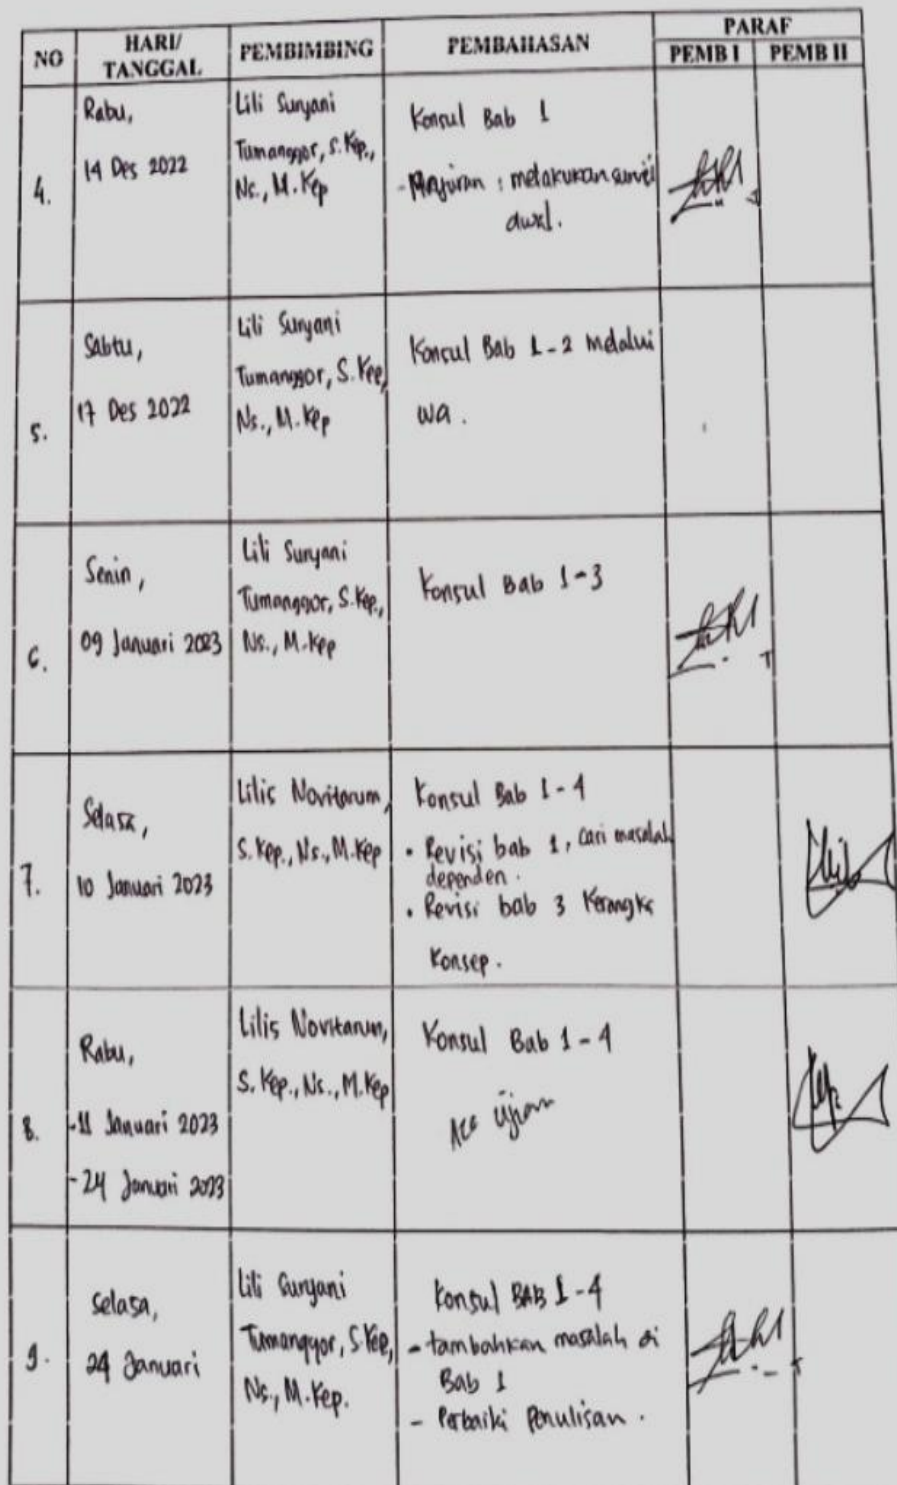 NO
HARI/
TANGGAL
PEMBIMBING
PEMBAHASAN
PARAF
PEMB I
PEMB II
4.
Rabu,
14 Des 2022
Lili Suryani
Tumanggor, S.Kep.,
Ns., M.Kep
Konsul Bab 1
- Anjuran : melakukan survei
awal.
5.
Sabtu,
17 Des 2022
Lili Suryani
Tumanggor, S.Kep,
Ns., M.Kep
Konsul Bab 1-2 melalui
wa.
6.
Senin,
09 Januari 2023
Lili Suryani
Tumanggor, S.Kep.,
Ns., M.Kep
Konsul Bab 1-3
7.
Selasa,
10 Januari 2023
Lilis Novitarum,
S.Kep., Ns., M.Kep
Konsul Bab 1-4
• Revisi bab 1, cari masalah
dependen.
• Revisi bab 3 Kerangka
Konsep.
8.
Rabu,
-11 Januari 2023
-24 Januari 2023
Lilis Novitarum,
S.Kep., Ns., M.Kep
Konsul Bab 1-4
Acc Ujian
9.
Selasa,
24 Januari
Lili Suryani
Tumanggor, S.Kep,
Ns., M.Kep.
Konsul BAB 1-4
- tambahkan masalah di
Bab 1
- Perbaiki Penulisan.